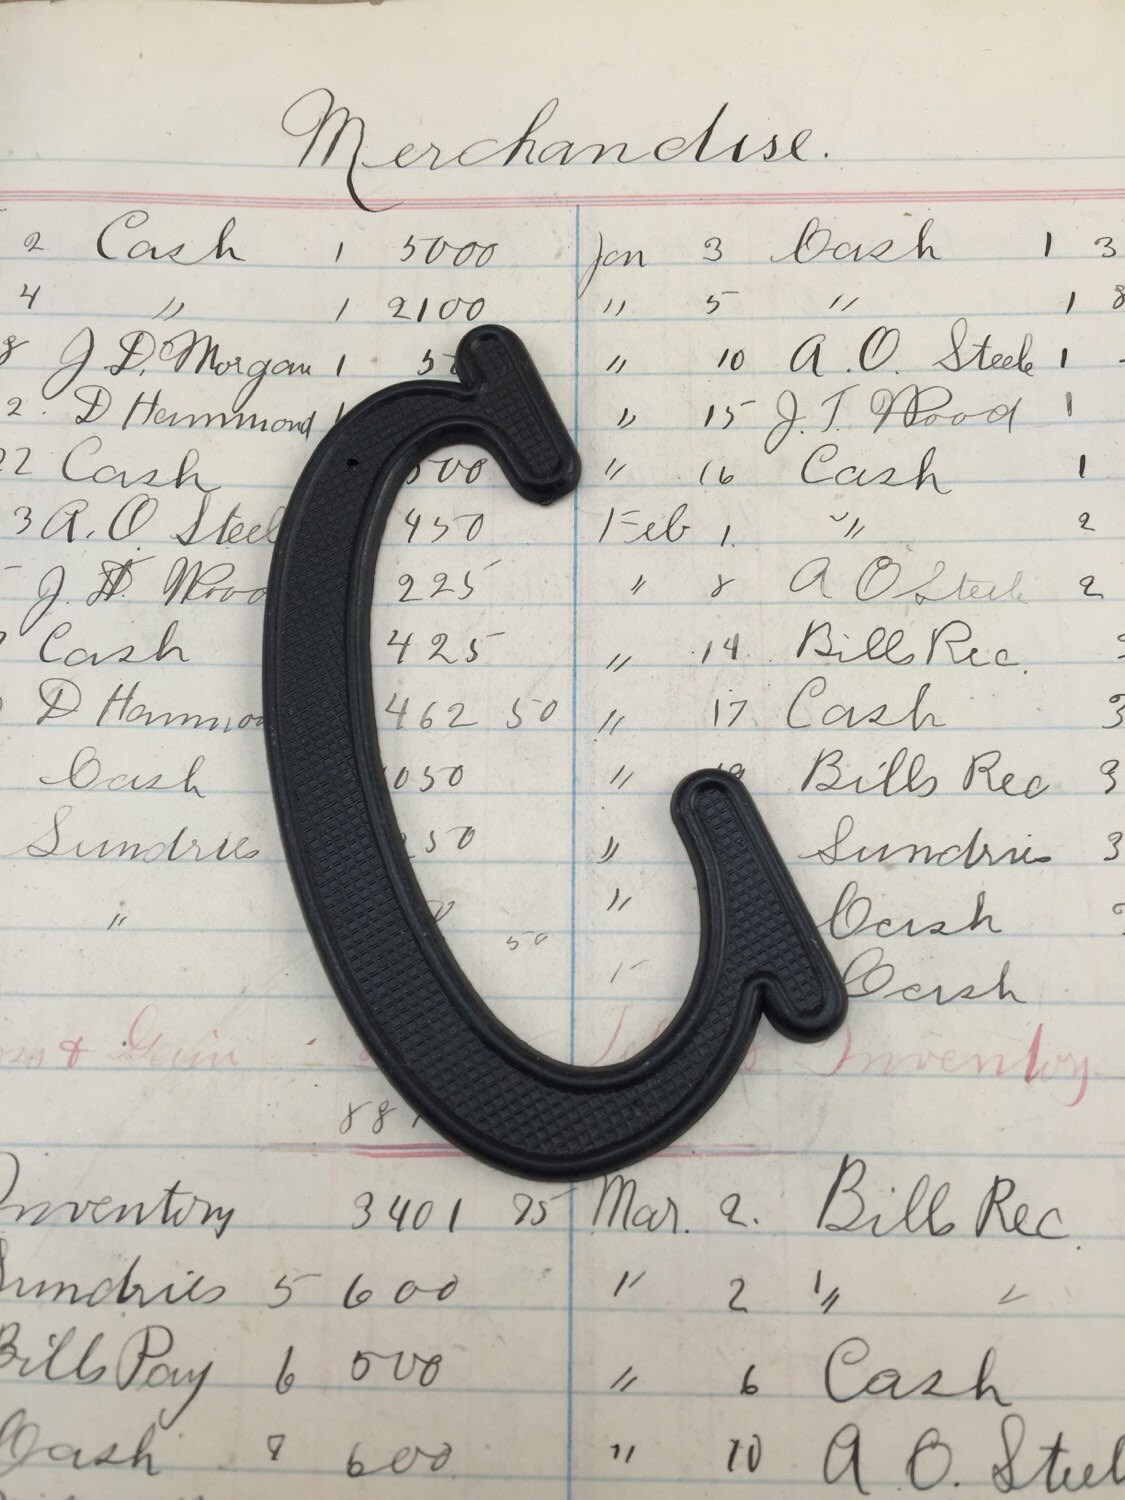 Merchandise.
2 Cash 1 5000 Jan 3 Cash 1 3
4 " 1 2100 " 5 " 1 8
8 J. D. Morgan 1 5 " 10 A. O. Steele 1
2. D Hammond " 15 J. T. Wood 1
22 Cash 500 " 16 Cash 1
3 A. O Steel 450 Feb 1. " 2
J. Woo 225 " 8 A O Steele 2
Cash 425 " 14. Bills Rec.
D Hammo 462 50 " 17 Cash 3
Cash 1050 " Bills Rec 3
Sundries 250 " Sundries 3
" 50 " Cash
Cash
& Gain Inventory
88
Inventory 3401 95 Mar. 2. Bill Rec.
Sundries 5 600 " 2 "
Bills Pay 6 500 " 6 Cash
Cash 8 600 " 10 A. O. Steel
C